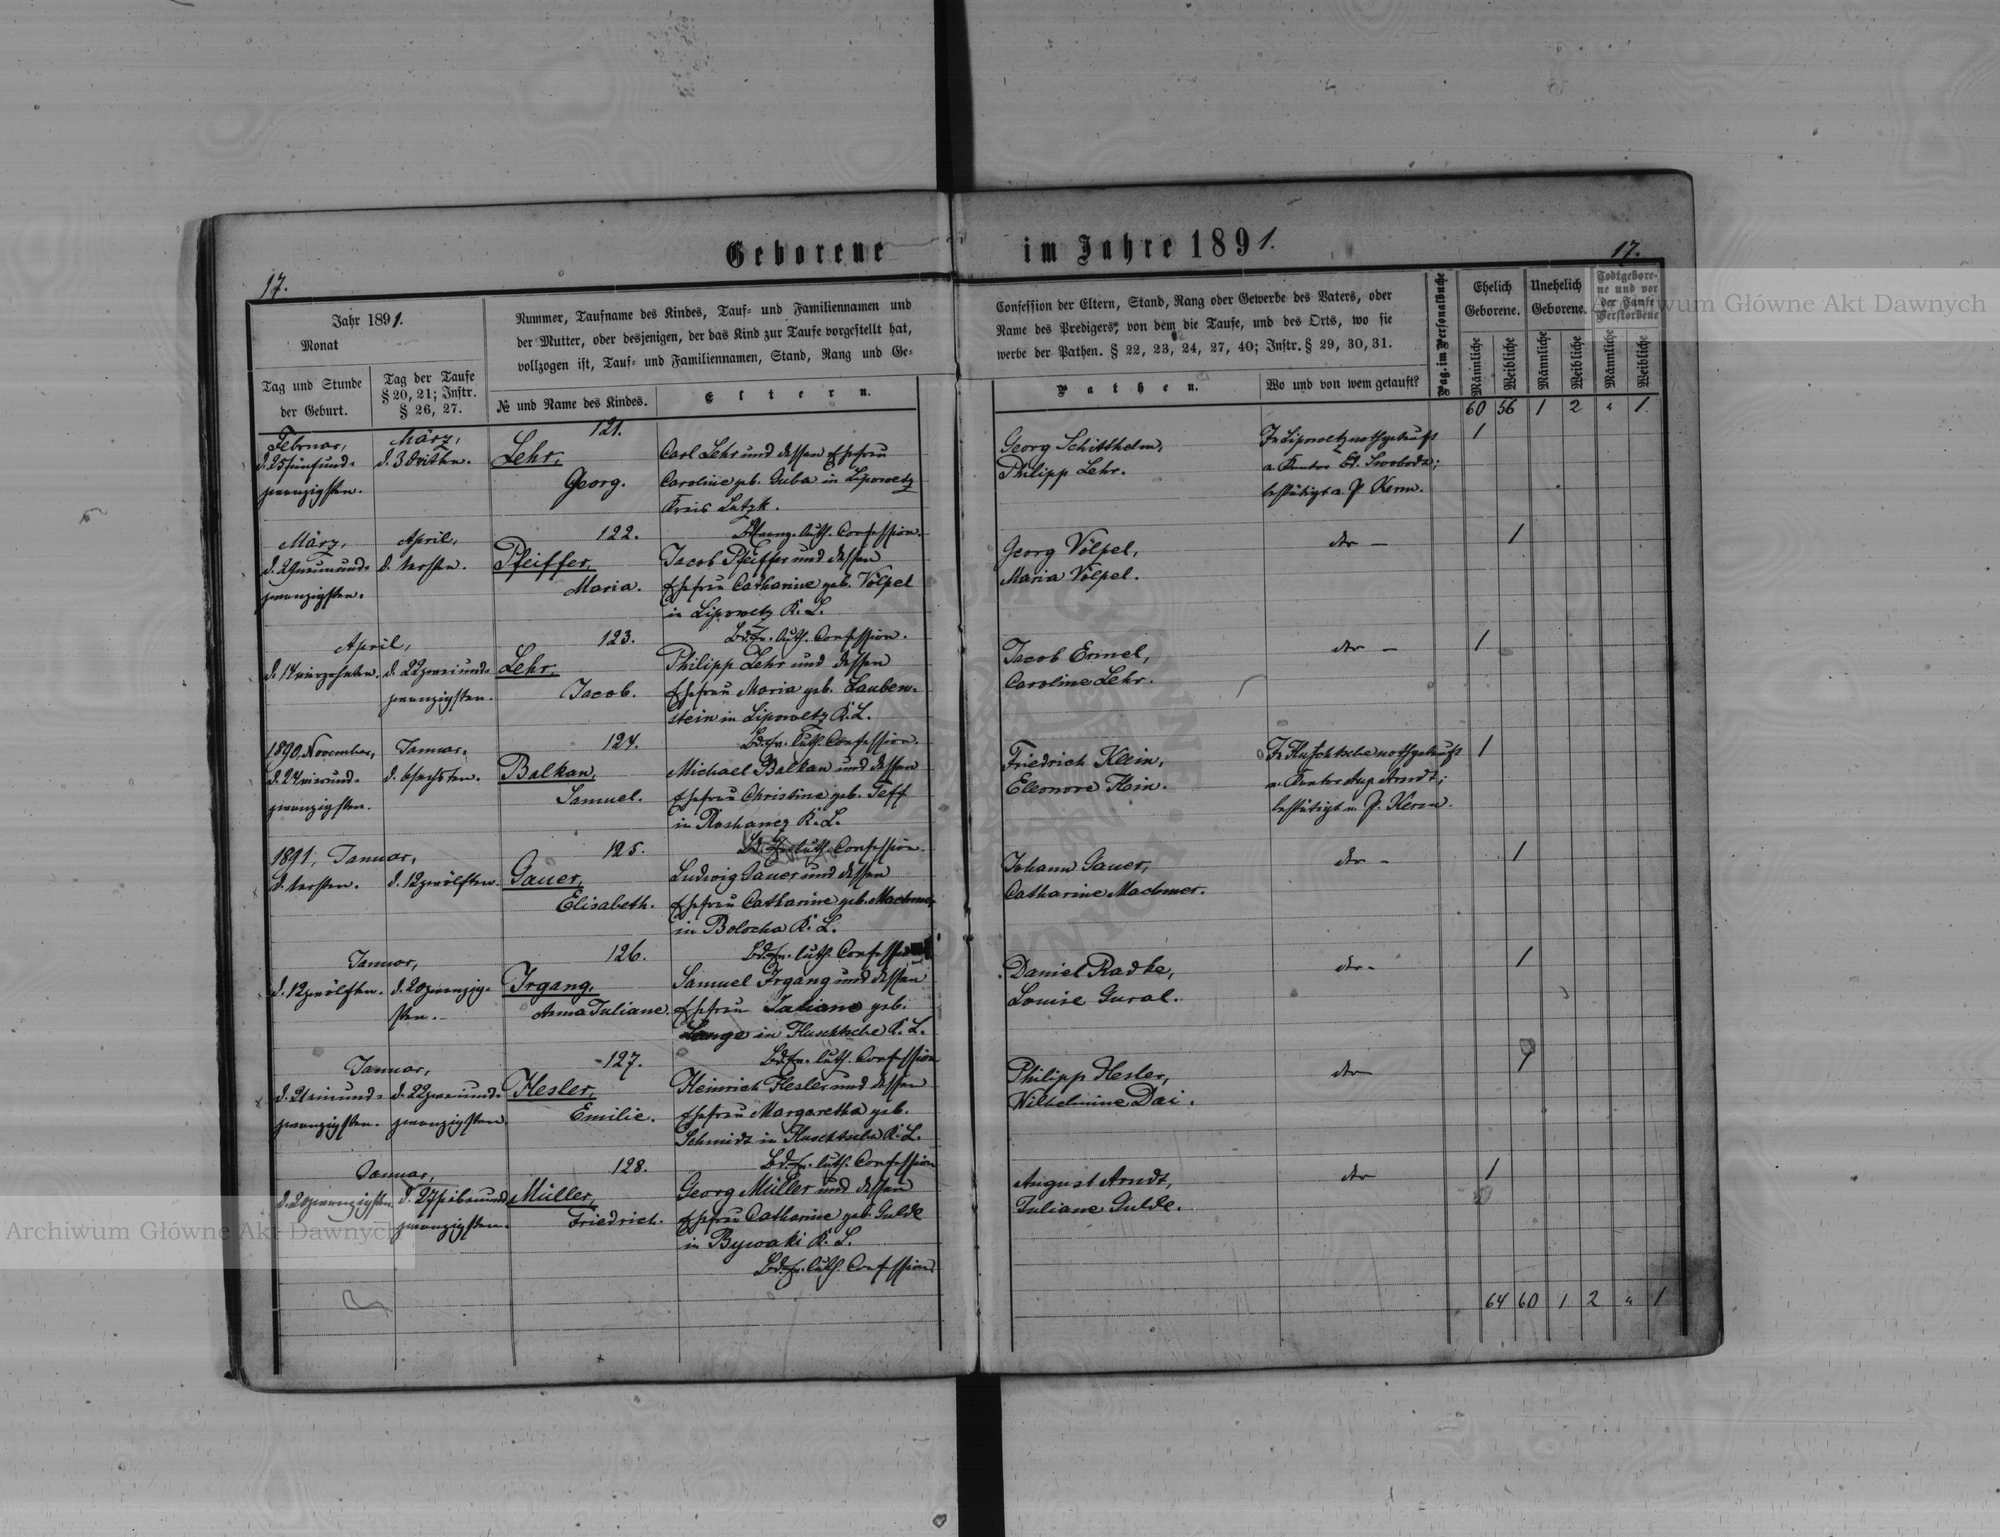 Geborene im Jahre 1891.
17.
17.
Jahr 1891.
Monat
Tag und Stunde
der Geburt.
Tag der Taufe
§ 20, 21; Instr.
§ 26, 27.
Nummer, Taufname des Kindes, Tauf- und Familiennamen und
der Mutter, oder desjenigen, der das Kind zur Taufe vorgestellt hat,
vollzogen ist, Tauf- und Familiennamen, Stand, Rang und Ge-
№ und Name des Kindes.
Eltern.
Confession der Eltern, Stand, Rang oder Gewerbe des Vaters, oder
Name des Predigers, von dem die Taufe, und des Orts, wo sie
werbe der Pathen. § 22, 23, 24, 27, 40; Instr. § 29, 30, 31.
Pathen.
Wo und von wem getauft?
Pag. im Personalbuche
Ehelich
Geborene.
Unehelich
Geborene.
Todtgebore-
ne und vor
der Taufe
Verstorbene
Männliche
Weibliche
Männliche
Weibliche
Männliche
Weibliche
60 56 1 2 " 1
Februar,
d. 25 fünfund-
zwanzigsten.
März,
d. 3 dritten.
121.
Lehr,
Georg.
Carl Lehr und dessen Ehefrau
Caroline geb. Guba in Lipowetz
Kreis Lutzk.
Evang. luth. Confession.
Georg Schitthelm,
Philipp Lehr.
In Lipowetz nothgetauft
v. Kantor Ed. Swoboda;
bestätigt v. P. Kerm.
1
März,
d. 29 neunund-
zwanzigsten.
April,
d. 1 ersten.
122.
Pfeiffer,
Maria.
Jacob Pfeiffer und dessen
Ehefrau Catharine geb. Völpel
in Lipowetz K. L.
Bd. Ev. luth. Confession.
Georg Völpel,
Maria Völpel.
dto –
1
April,
d. 14 vierzehnten.
d. 22 zweiund-
zwanzigsten.
123.
Lehr,
Jacob.
Philipp Lehr und dessen
Ehefrau Maria geb. Lauben-
stein in Lipowetz K. L.
Bd. Ev. luth. Confession.
Jacob Ermel,
Caroline Lehr.
dto –
1
1890, November,
d. 24 vierund-
zwanzigsten.
Januar,
d. 6 sechsten.
124.
Balkan,
Samuel.
Michael Balkan und dessen
Ehefrau Christine geb. Teff
in K. L.
Bd. Ev. luth. Confession.
Friedrich Klein,
Eleonore Klein.
In nothgetauft
v. Kantor Aug. Arndt;
bestätigt v. P. Kerm.
1
1891, Januar,
d. 1 ersten.
d. 12 zwölften.
125.
Gauer,
Elisabeth.
Ludwig Gauer und dessen
Ehefrau Catharine geb. Machmer
in Bolocha K. L.
Bd. Ev. luth. Confession
Johann Gauer,
Catharine Machmer.
dto –
1
Januar,
d. 12 zwölften.
d. 20 zwanzig-
sten.
126.
Irgang,
Anna Juliane.
Samuel Irgang und dessen
Ehefrau Juliane geb.
Lange in Huschtsche K. L.
Bd. Ev. luth. Confession
Daniel Radke,
Louise Gural.
dto –
1
Januar,
d. 21 einund-
zwanzigsten.
d. 22 zweiund-
zwanzigsten.
127.
Hesler,
Emilie.
Heinrich Hesler und dessen
Ehefrau Margaretha geb.
Schmidt in Huschtsche K. L.
Bd. Ev. luth. Confession
Philipp Hesler,
Wilhelmine Dai.
dto
1
Januar,
d. 20 zwanzigsten
d. 27 siebenund-
zwanzigsten.
128.
Müller,
Friedrich.
Georg Müller und dessen
Ehefrau Catharine geb. Gulde
in Bywaki K. L.
Bd. Ev. luth. Confession.
August Arndt,
Juliane Gulde.
dto
1
64 60 1 2 " 1
Archiwum Główne Akt Dawnych
Archiwum Główne Akt Dawnych